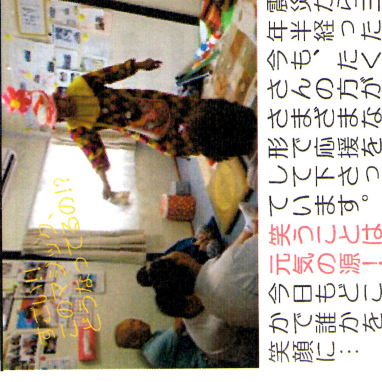 すごい!!
このマジック、
どうなってるの!?
震災から三
年半経った
今も、たく
さんの方が
さまざまな
形で応援を
して下さっ
ています。
笑うことは
元気の源!
今日もどこ
かで誰かを
笑顔に…